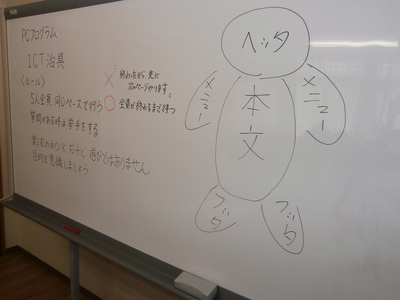 PCプログラム
ICT治具
〈ルール〉
5人全員、同じペースで行う
質問がある時は挙手をする
楽しむのはO.K.だけど、遊びではありません
目的を意識しましょう
× 終わったから、先に
次のページやります。
○ 全員が終わるまで待つ
ヘッダ
メニュー
本文
メニュー
フッタ
フッタ